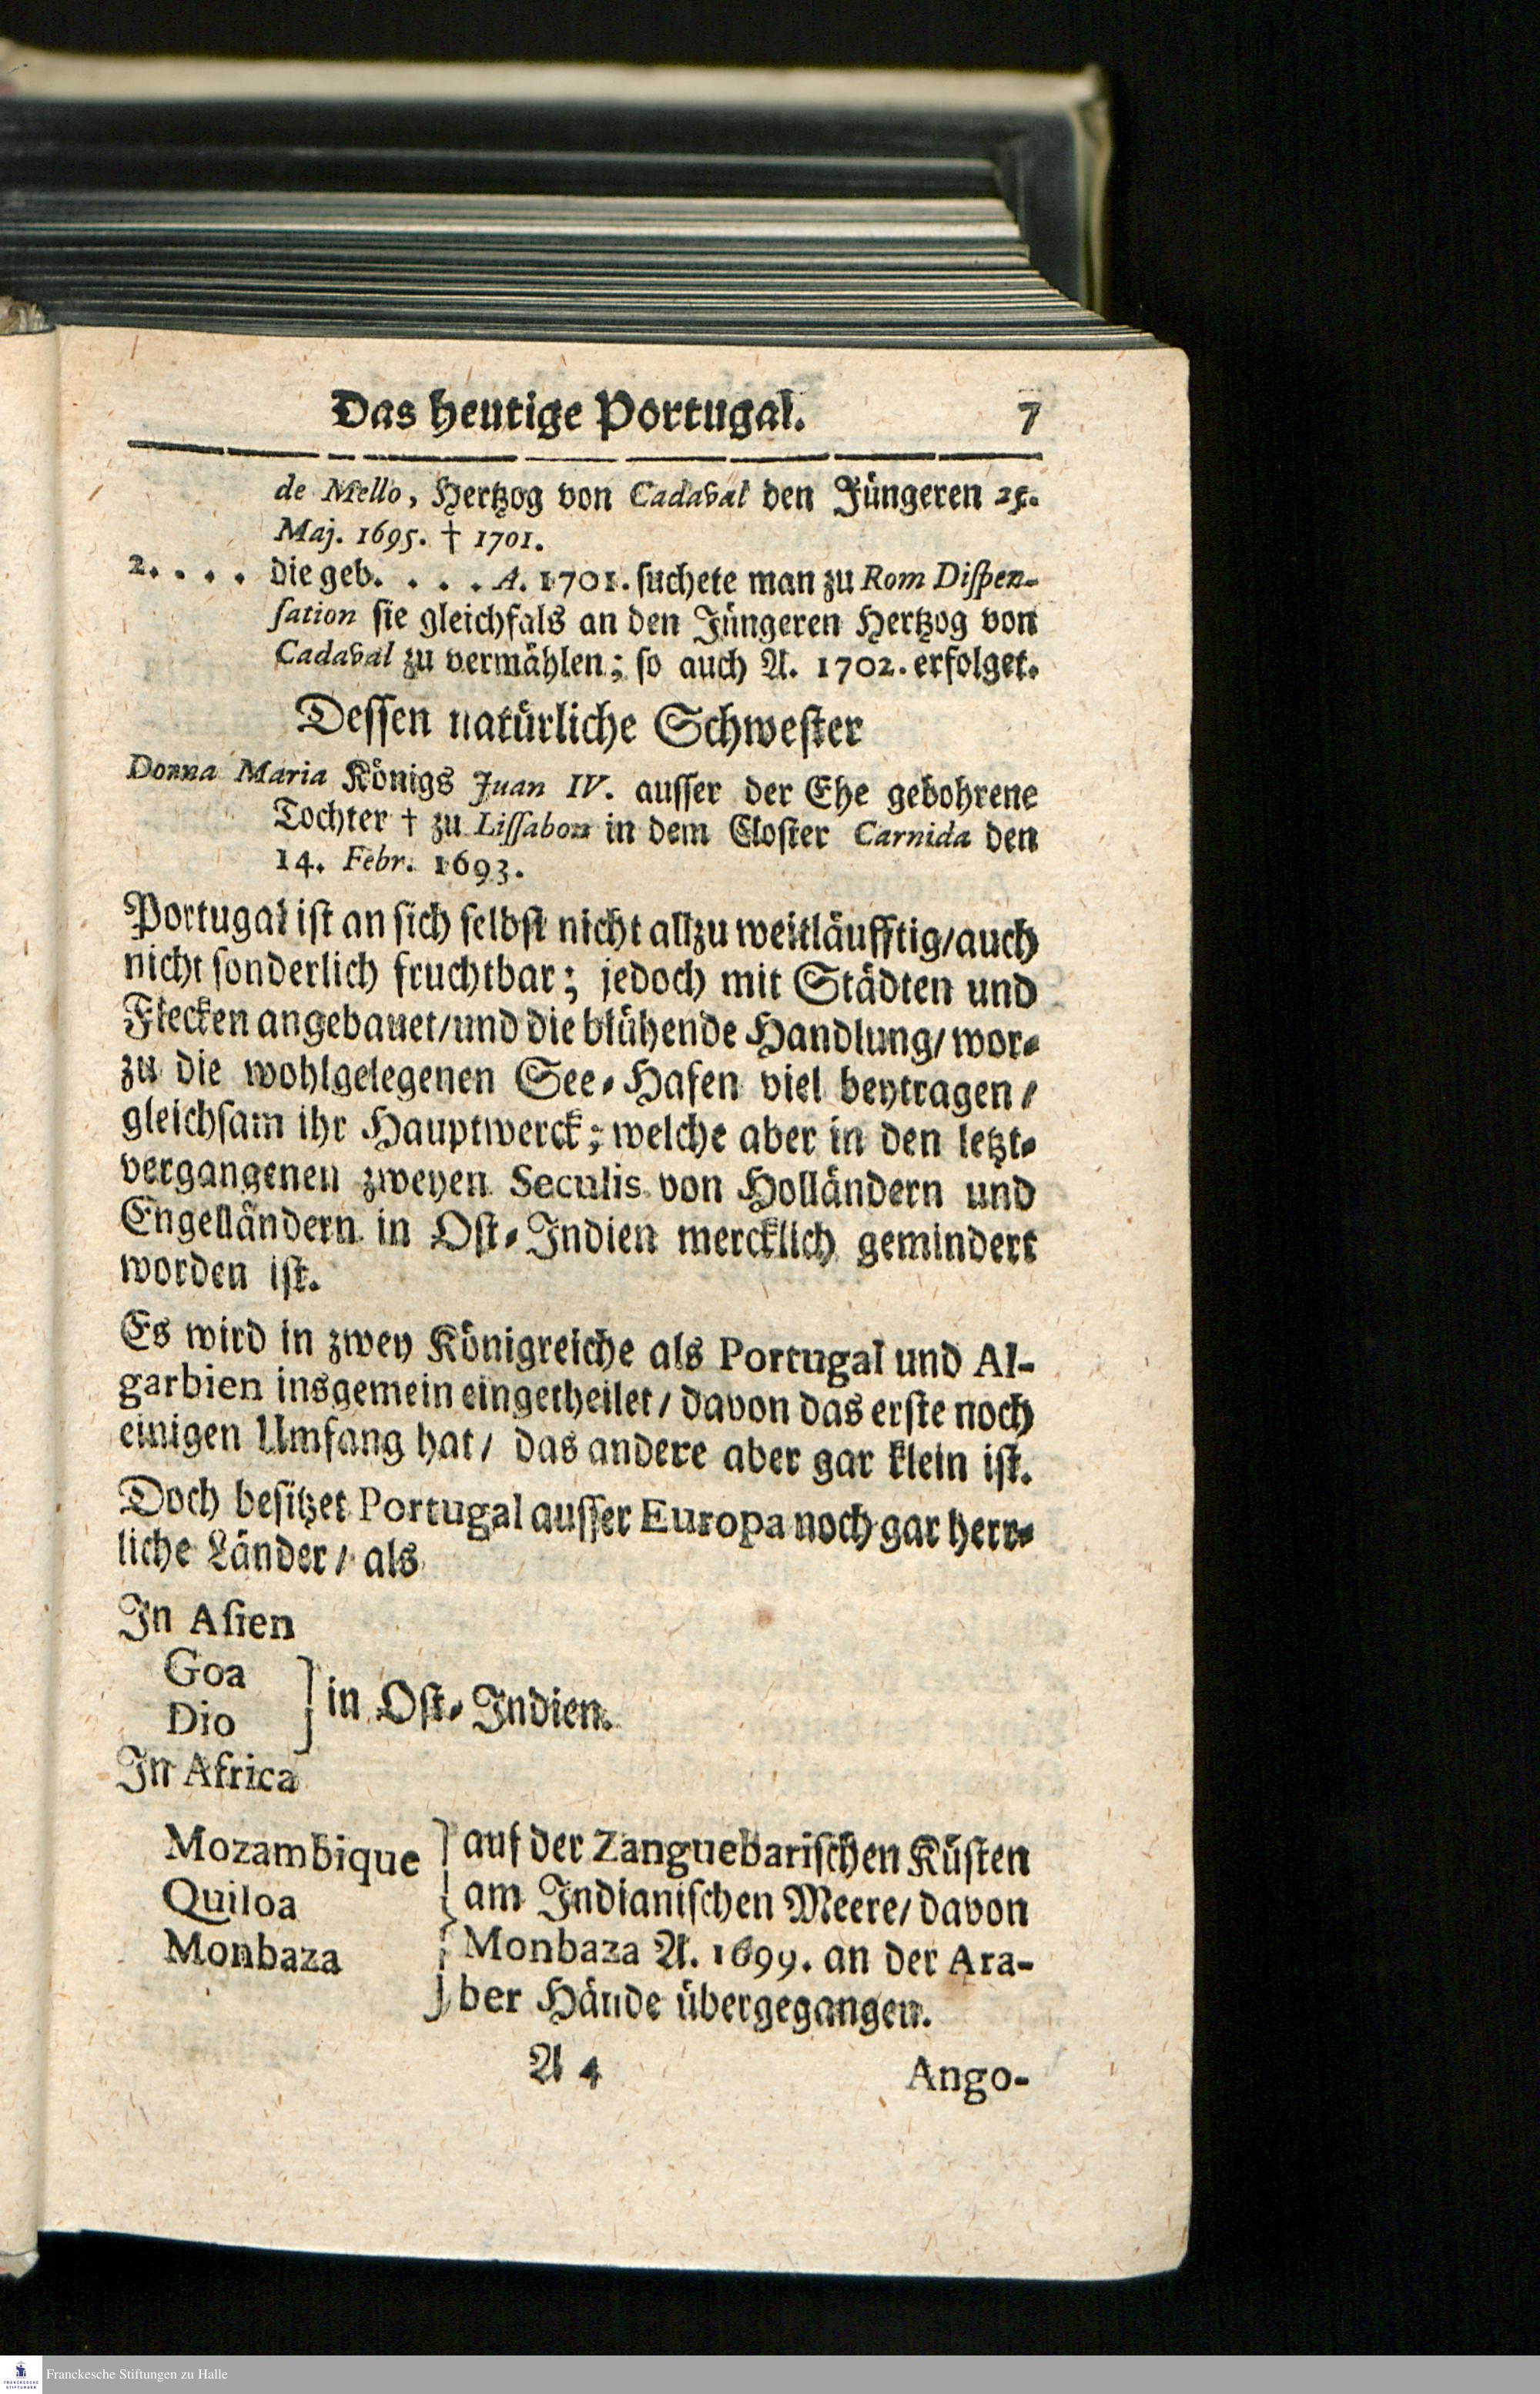 Das heutige Portugal. 7
de Mello, Hertzog von Cadaval den Jüngeren 25.
Maj. 1695. † 1701.
2. . . . die geb. . . . . A. 1701. suchete man zu Rom Dispen-
sation sie gleichfals an den Jüngeren Hertzog von
Cadaval zu vermählen; so auch A. 1702. erfolget.
Dessen natürliche Schwester
Donna Maria Königs Juan IV. ausser der Ehe gebohrene
Tochter † zu Lissabon in dem Closter Carnida den
14. Febr. 1693.
Portugal ist an sich selbst nicht allzu weitläufftig/auch
nicht sonderlich fruchtbar; jedoch mit Städten und
Flecken angebauet/und die blühende Handlung/wor-
zu die wohlgelegenen See-Hafen viel beytragen/
gleichsam ihr Hauptwerck; welche aber in den letzt-
vergangenen zweyen Seculis von Holländern und
Engelländern in Ost-Indien mercklich gemindert
worden ist.
Es wird in zwey Königreiche als Portugal und Al-
garbien insgemein eingetheilet/davon das erste noch
einigen Umfang hat/ das andere aber gar klein ist.
Doch besitzet Portugal ausser Europa noch gar herr-
liche Länder/ als
In Asien
Goa
Dio
in Ost-Indien.
In Africa
Mozambique
Quiloa
Monbaza
auf der Zanguebarischen Küsten
am Indianischen Meere/davon
Monbaza A. 1699. an der Ara-
ber Hände übergegangen.
A 4 Ango-
Franckesche Stiftungen zu Halle